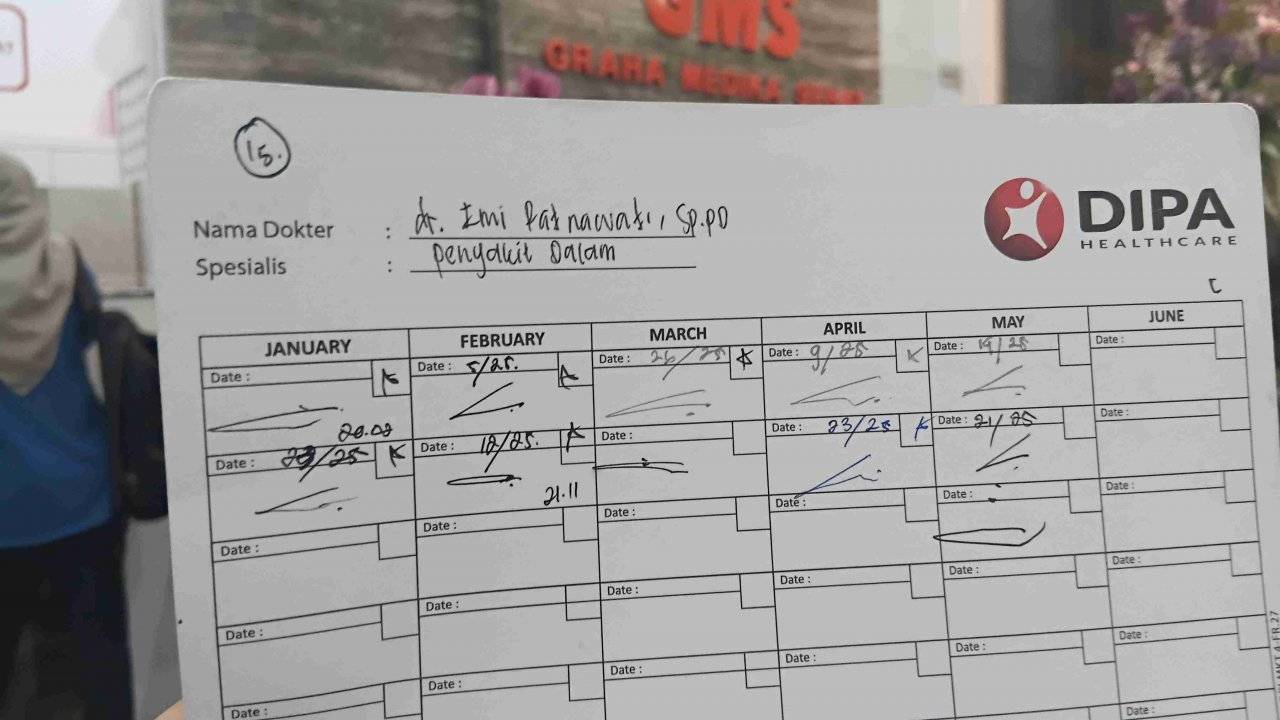 GMS
GRAHA MEDIKA
15.
Nama Dokter : dr. Emi Ratnawati, Sp.PD
Spesialis : Penyakit Dalam
DIPA
HEALTHCARE
JANUARY FEBRUARY MARCH APRIL MAY JUNE
Date : K Date : 5/25. K Date : 26/25 K Date : 9/25 K Date : 14/25 Date :
20.02
Date : /25 K Date : 12/25. K Date : Date : 23/25 K Date : 21/25 Date :
21.11
Date : Date : Date : Date : Date : Date :
Date : Date : Date : Date : Date : Date :
Date : Date : Date : Date : Date : Date :
Date :